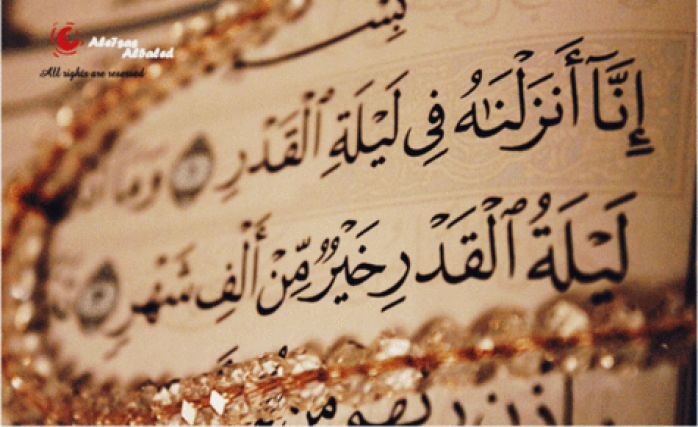 Ale7sas
Albaled
All rights are reserved
بِسْ
إِنَّآ أَنزَلْنَـٰهُ فِى لَيْلَةِ ٱلْقَدْرِ ۝ وَمَا
لَيْلَةُ ٱلْقَدْرِ خَيْرٌ مِّنْ أَلْفِ شَهْرٍ ۝